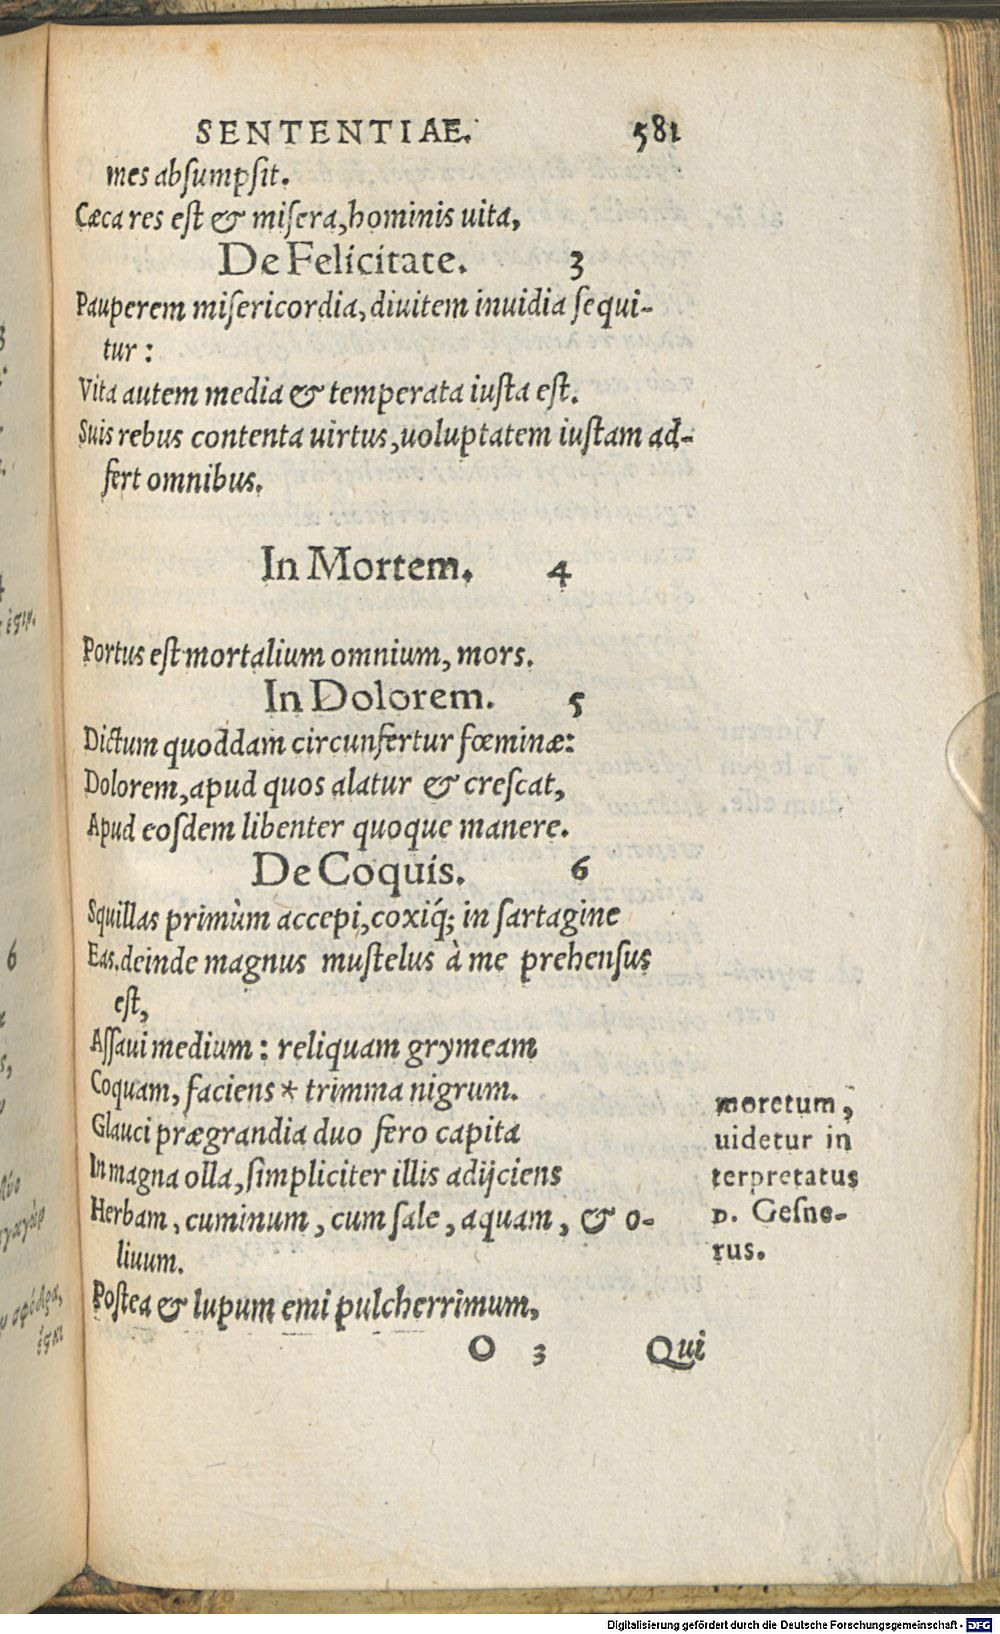 SENTENTIAE. 581
mes absumpsit.
Cæca res est & misera, hominis uita,
De Felicitate. 3
Pauperem misericordia, diuitem inuidia sequi-
tur:
Vita autem media & temperata iusta est.
Suis rebus contenta uirtus, uoluptatem iustam ad-
fert omnibus.
In Mortem. 4
Portus est mortalium omnium, mors.
In Dolorem. 5
Dictum quoddam circunfertur fœminæ:
Dolorem, apud quos alatur & crescat,
Apud eosdem libenter quoque manere.
De Coquis. 6
Squillas primùm accepi, coxiq́; in sartagine
Eas. deinde magnus mustelus à me prehensus
est,
Assaui medium: reliquam grymeam
Coquam, faciens * trimma nigrum.
Glauci prægrandia duo fero capita
In magna olla, simpliciter illis adijciens
Herbam, cuminum, cum sale, aquam, & o-
liuum.
Postea & lupum emi pulcherrimum,
O 3 Qui
moretum,
uidetur in
terpretatus
D. Gesne-
rus.
Digitalisierung gefördert durch die Deutsche Forschungsgemeinschaft - DFG